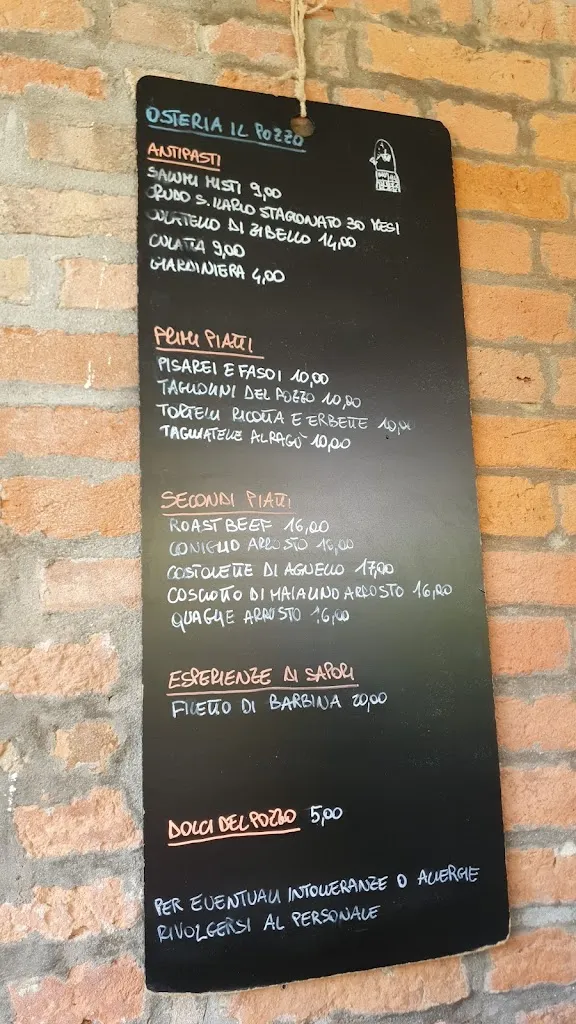 OSTERIA IL POZZO
ANTIPASTI
SALUMI MISTI 9,00
CRUDO S. ILARIO STAGIONATO 30 MESI
CULATELLO DI ZIBELLO 14,00
CULATTA 9,00
GIARDINIERA 4,00
PRIMI PIATTI
PISAREI E FASOI 10,00
TAGLIOLINI DEL POZZO 10,00
TORTELLI RICOTTA E ERBETTE 10,00
TAGLIATELLE AL RAGÙ 10,00
SECONDI PIATTI
ROAST BEEF 16,00
CONIGLIO ARROSTO 16,00
COSTOLETTE DI AGNELLO 17,00
COSCIOTTO DI MAIALINO ARROSTO 16,00
QUAGLIE ARROSTO 16,00
ESPERIENZE DI SAPORI
FILETTO DI BARBINA 20,00
DOLCI DEL POZZO 5,00
PER EVENTUALI INTOLLERANZE O ALLERGIE
RIVOLGERSI AL PERSONALE